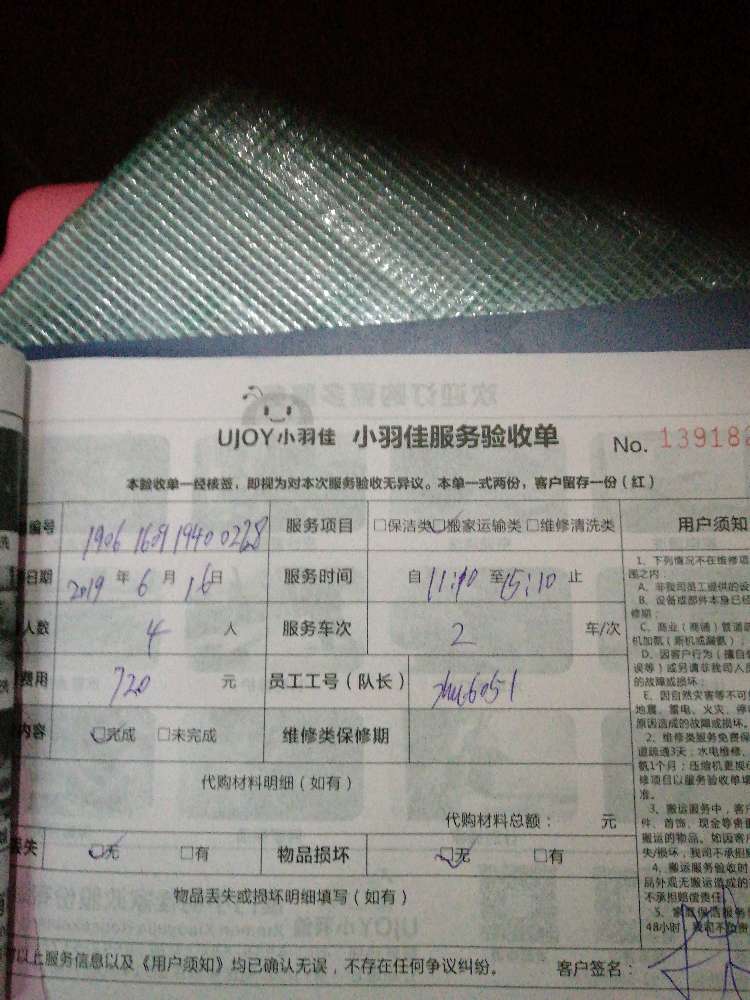 UJOY小羽佳 小羽佳服务验收单 No. 139182
本验收单一经核签，即视为对本次服务验收无异议。本单一式两份，客户留存一份（红）
编号 1906 1609 1940 0228 服务项目 □保洁类 □搬家运输类 □维修清洗类 用户须知
日期 2019 年 6 月 16 日 服务时间 自 11:10 至 15:10 止
人数 4 人 服务车次 2 车/次
费用 720 元 员工工号（队长） zhu6051
内容 □完成 □未完成 维修类保修期
代购材料明细（如有）
代购材料总额： 元
丢失 □无 □有 物品损坏 □无 □有
物品丢失或损坏明细填写（如有）
以上服务信息以及《用户须知》均已确认无误，不存在任何争议纠纷。 客户签名：
1、下列情况不在维修项
围之内：
A、非我司员工提供的设
B、设备或部件本身已经
修期；
C、商业（商铺）管道疏
机加氨（新机或漏氨）；
D、因客户行为（擅自
误等）或另请非我司人员
的故障或损坏；
E、因自然灾害等不可
地震、雷电、火灾、停
原因造成的故障或损坏。
2、维修类服务免费保
道疏通3天；水电维修、
氨1个月；压缩机更换
修项目以服务验收单填
准。
3、搬运服务中，客
件、首饰、现金等贵重
搬运的物品。如因客户
失/损坏，我司不承担
4、搬运服务验收时
品外观无搬运造成的
不承担赔偿责任
5、家庭保洁服务
48小时，我司不负责